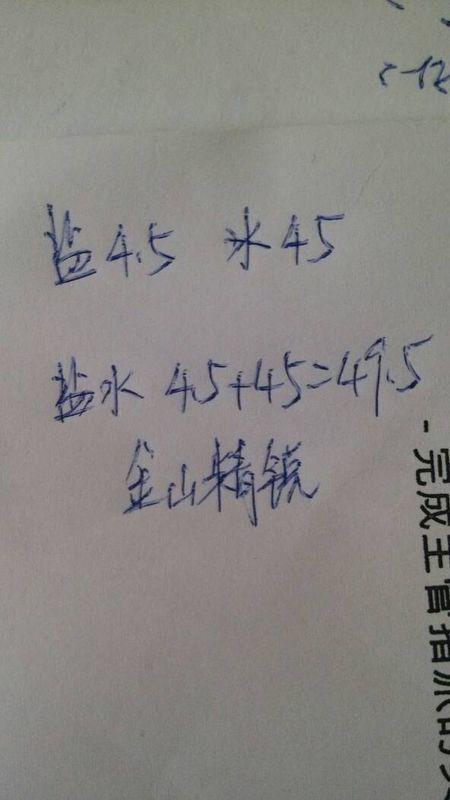 盐4.5 水45
盐水 4.5+45=49.5
金山精锐
-完成主管指派的